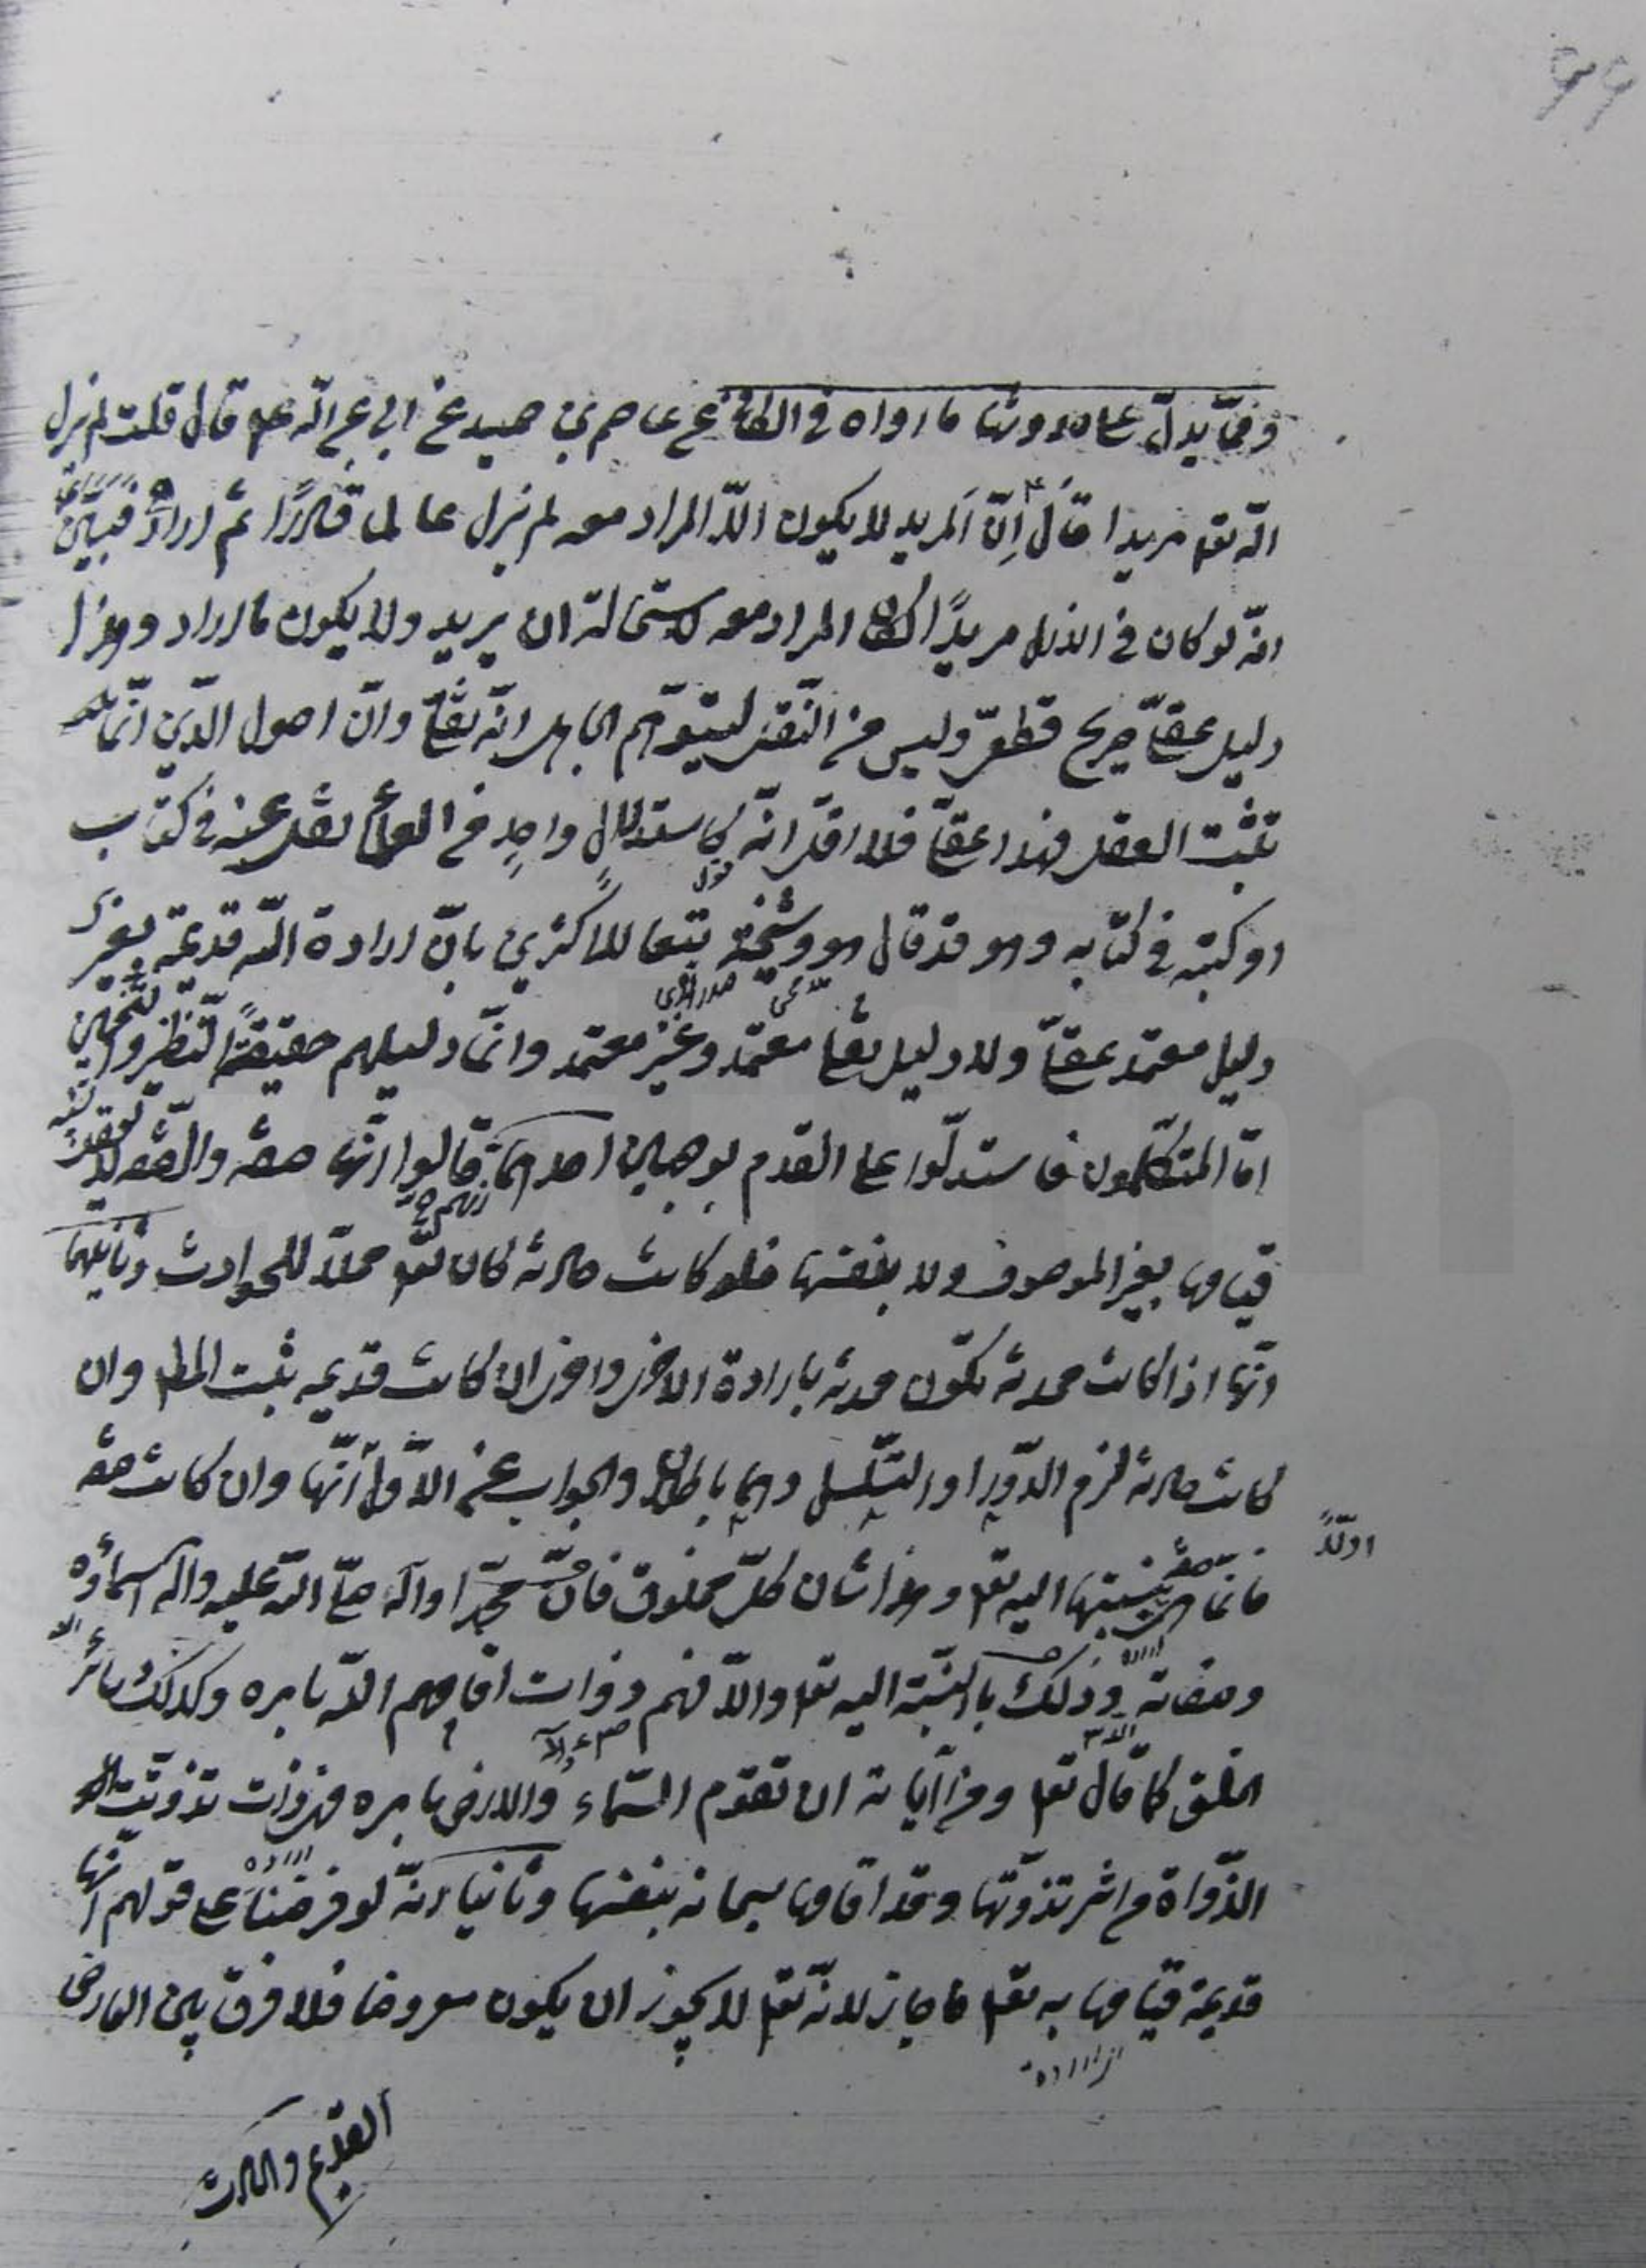 ٩٩
وممّا يدلّ على حدوثها ما رواه في الكافي عن عاصم بن حميد عن ابي عبد الله عم قال قلت لم يزل
الله تعم مريدا قال اِنّ المريد لا يكون الّا المراد معه لم يزل عالما قادرًا ثم اراد فبيّن
انّه لو كان في الازل مريدًا لكان المراد معه لاستحالة ان يريد ولا يكون ما اراد وهذا
دليل عقلّي صريح قطعيّ وليس من النّقل ليتوهّم الجاهل انّه نقلّي وانّ اصول الدّين انّما
تثبت العقل فهذا عقلّي فلا اقلّ انّه كاستدلالٍ واحدٍ من العلماء نقل عنه في كتاب
او كتبه في كتابه وهو قد قال هو وشيخه تبعا للاكثرين بانّ ارادة الله قديمة بغير
دليل معتمد عقلّي ولا دليل نقلي معتمد وغير معتمد وانّما دليلهم حقيقةً النّظر والتخمين
امّا المتكلّمون فاستدلّوا على القدم بوجهين احدهما قالوا انّها صفة والصّفة لا يعقل
قيامها بغير الموصوف ولا بنفسها فلو كانت حادثة كان تعم محلّا للحوادث وثانيهما
انّها اذا كانت محدثة تكون محدثة بارادة الاخرى واخرى ان كانت قديمه ثبت المطلـ وان
كانت حادثة لزم الدّور او التّسلسل وهما باطلان والجواب عن الاوّل أنّها وان كانت صفة
اولًا
فانّما هي صفة بنسبتها اليه تعم وهذا شان كلّ مخلوق فانّ محمّدا وآله صلّى الله عليه واله اسماؤه
وصفاته وذلك بالنّسبة اليه تعم والّا فهم ذوات اقامهم الله بامره وكذلك سائر
الخلق كما قال تعم ومن آياته ان تقوم السّماء والارض بامره فهي ذات تذوّتت
الذّواة من اثر تذوّتها وقد اقامها سبحانه بنفسها وثانيا انّه لو فرضنا على قولهم انّها
قديمة قيامها به تعم ما جاز لانّه تعم لا يجوز ان يكون معروضا فلا فرق بين العارض
القديم والحادث